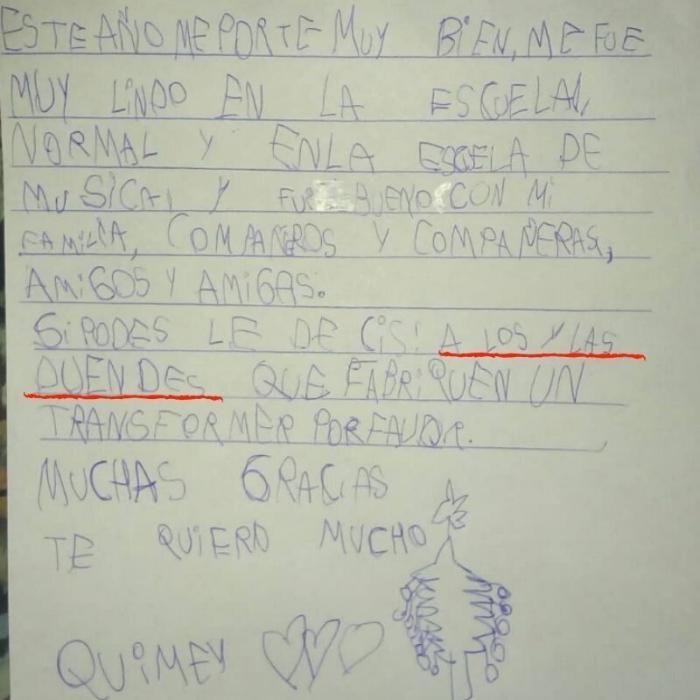 ESTE AÑO ME PORTE MUY BIEN, ME FUE
MUY LINDO EN LA ESCUELA,
NORMAL Y ENLA ESCELA DE
MUSICA, Y FUI BUENO CON MI
FAMILIA, COMPAÑEROS Y COMPAÑERAS,
AMIGOS Y AMIGAS.
SI PODES LE DECIS! A LOS Y LAS
DUENDES QUE FABRIQUEN UN
TRANSFORMER PORFAVOR.
MUCHAS GRACIAS
TE QUIERO MUCHO
QUIMEY